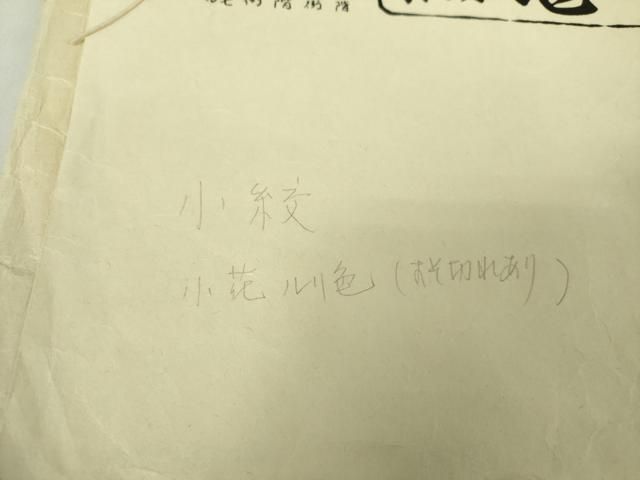 小絞
小花 ルリ色 (すそ切れあり)